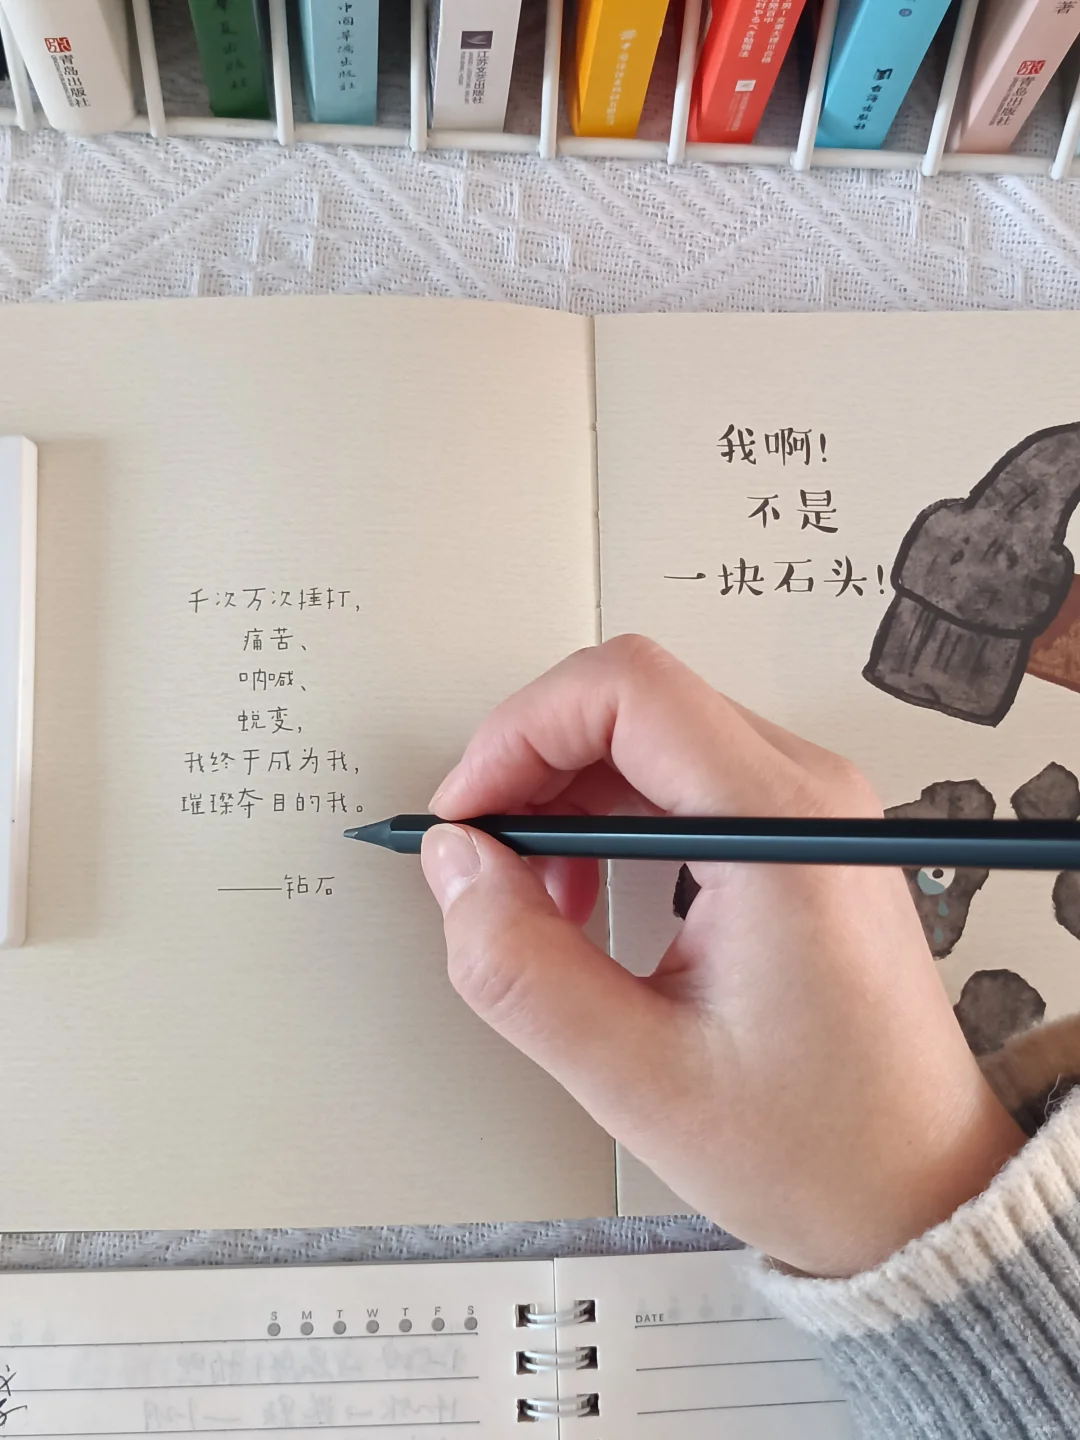 青岛出版社
江苏文艺出版社
著
青岛出版社
千次万次捶打，
痛苦、
呐喊、
蜕变，
我终于成为我，
璀璨夺目的我。
——钻石
我啊！
不是
一块石头！
S M T W T F S
DATE